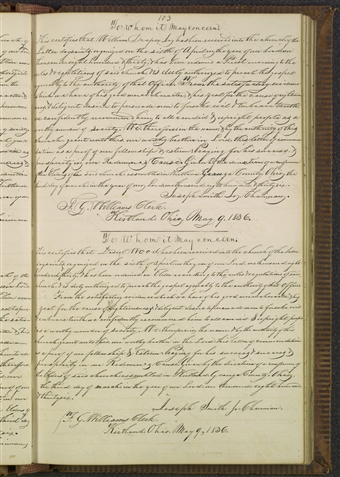 103
To whom it May concern.
This certifies that William Draper Jr has been received into the church of the
Latter day saints organized on the sixth of April in the year of our Lord one
thousand eight hundred & thirty, & has been ordained a Priest according to the
rules & regulations of said church & is duly authorized to preach the gospel
agreeably to the authority of that office. From the satisfactory evidence
which we have of his good moral character & his zeal for the cause of righteousness
and diligent desire to persuade men to forsake evil & embrace truth
we confidently recommend him to all candid & upright people as a
worthy member of society. We therefore in the name & by the authority of this
church grant unto this our worthy brother in the Lord this letter of commendation
as a proof of our fellowship & esteem Praying for his success &
prosperity in our Redeemer's Cause. Given by the direction of a conference of
the Elders of said church assembled in Kirtland Geauga County Ohio the
day of March in the year of our Lord one thousand eight hundred & thirty six.
Joseph Smith Jr Chairman.
F. G. Williams Clerk.
Kirtland Ohio, May 9, 1836.
To Whom it May concern.
This certifies that Wood has been received into the church of the Latter
day saints organized on the sixth of April in the year of our Lord one thousand eight
hundred & thirty & has been ordained an Elder according to the rules & regulations of said
church & is duly authorized to preach the gospel agreeably to the authority of that office.
From the satisfactory evidence which we have of his good moral character &
zeal for the cause of righteousness & diligent desire to persuade men to forsake evil
& embrace truth we confidently recommend him to all candid & upright people
as a worthy member of society. We therefore in the name & by the authority of this
church grant unto this our worthy brother in the Lord this letter of commendation
as a proof of our fellowship & esteem Praying for his success &
prosperity in our Redeemer's Cause. Given by the direction of a conference of
the Elders of said church assembled in Kirtland Geauga County Ohio
the third day of March in the year of our Lord one thousand eight hundred
and thirty six.
Joseph Smith Jr Chairman.
F. G. Williams Clerk.
Kirtland, Ohio, May 9, 1836.